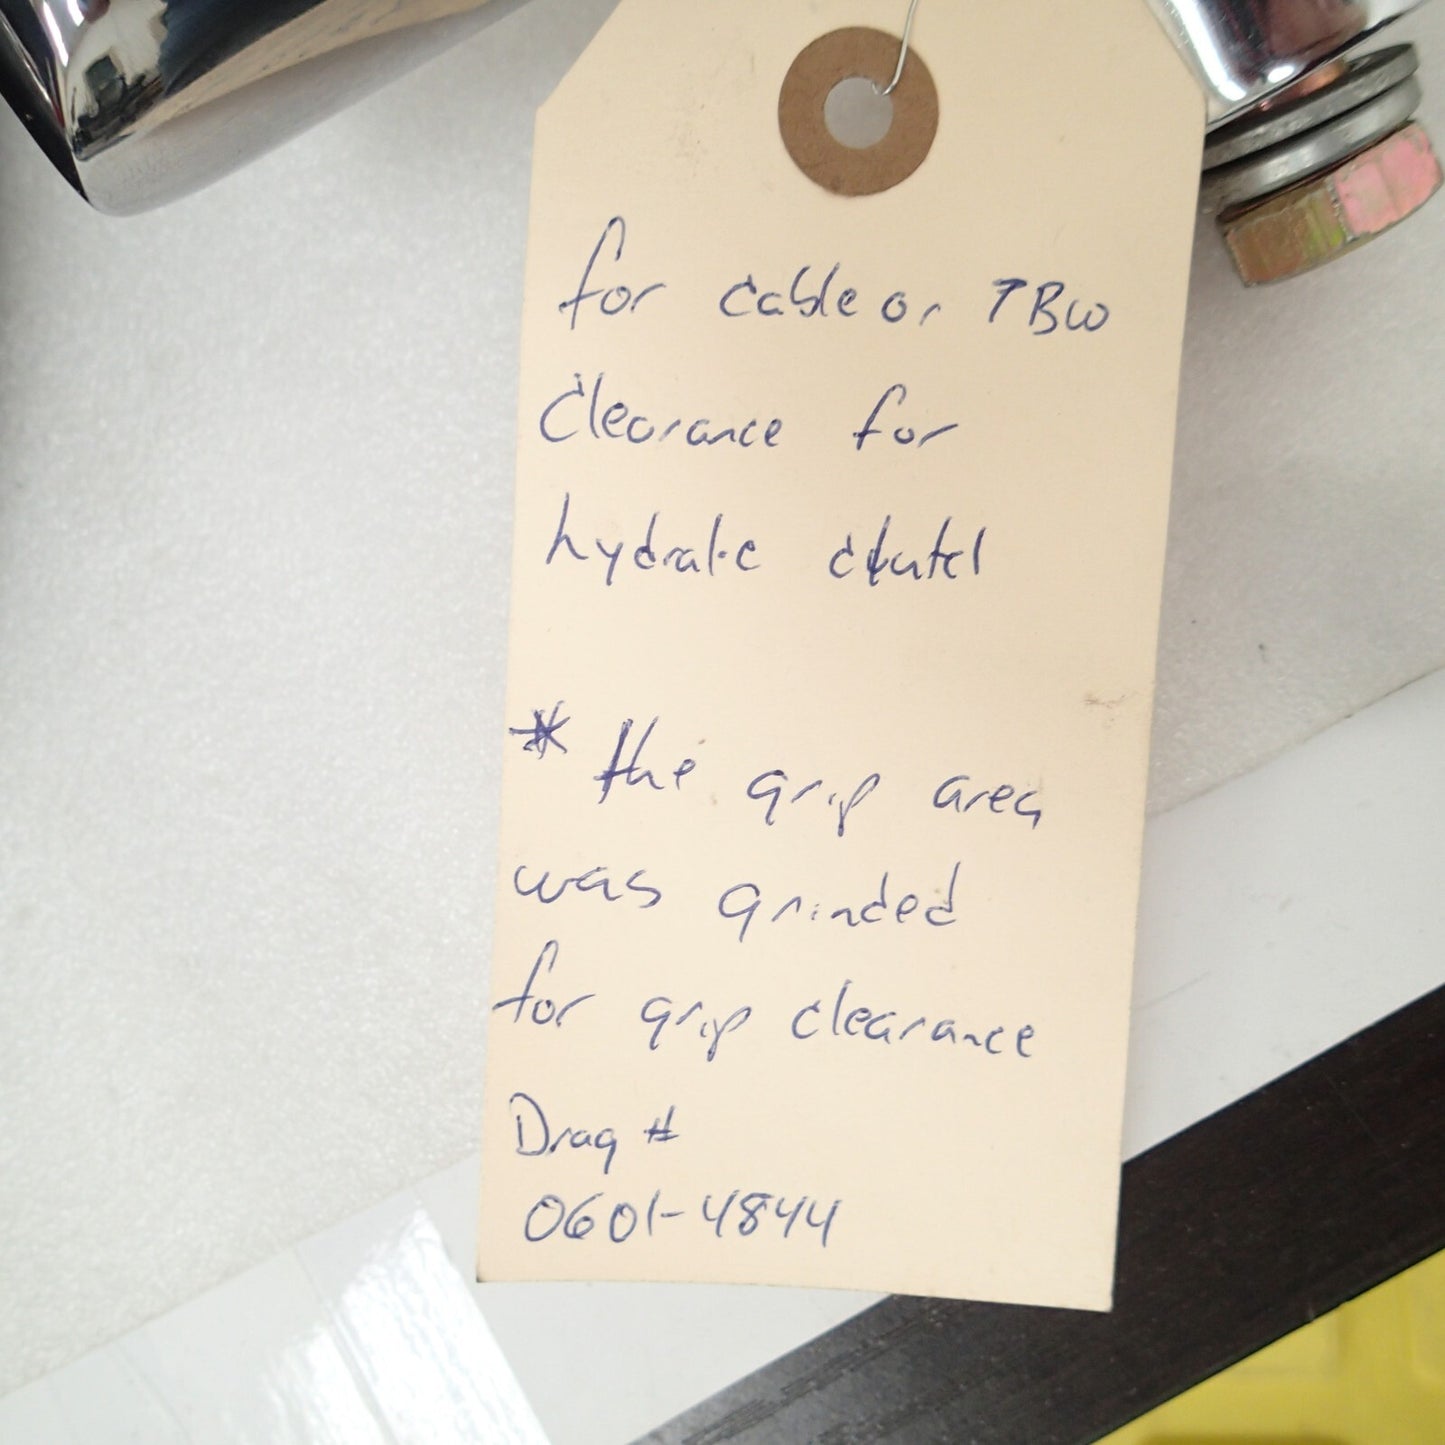 for cable or TBW
Clearance for
hydralic
* the grip area
was grinded
for grip clearance
Drag #
0601-4844